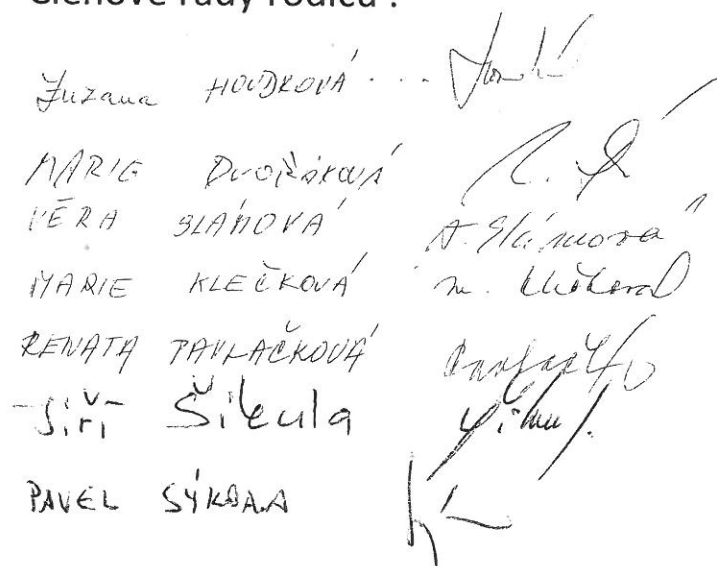 Členové rady rodičů :
Zuzana HOUDKOVÁ
MARIE DVOŘÁKOVÁ
VĚRA SLÁMOVÁ A. Slámová
MARIE KLEČKOVÁ m. Klečková
RENATA PAVLAČKOVÁ
Jiří Šikula
PAVEL SÝKORA